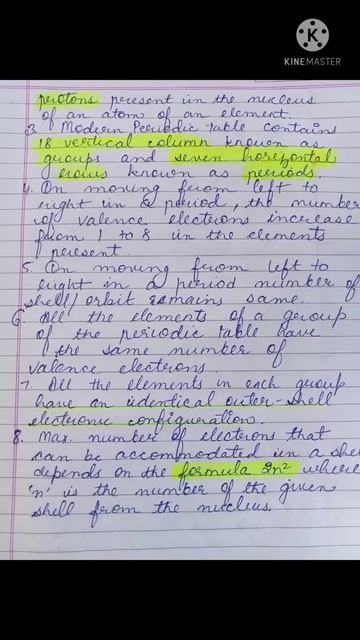 KINEMASTER
protons present in the nucleus
of an atom of an element.
3. Modern Periodic Table contain
18 vertical column known as
groups and seven horizontal
rows known as periods.
4. On moving from left to
right in a period, the number
of valence electrons increase
from 1 to 8 in the elements
present.
5. On moving from left to
right in a period number of
shell/orbit remains same.
6. All the elements of a group
of the periodic table have
the same number of
valence electrons.
7. All the elements in each group
have an identical outer-shell
electronic configuration.
8. Max. number of electrons that
can be accommodated in a she
depends on the formula 2n² where
'n' is the number of the given
shell from the nucleus.